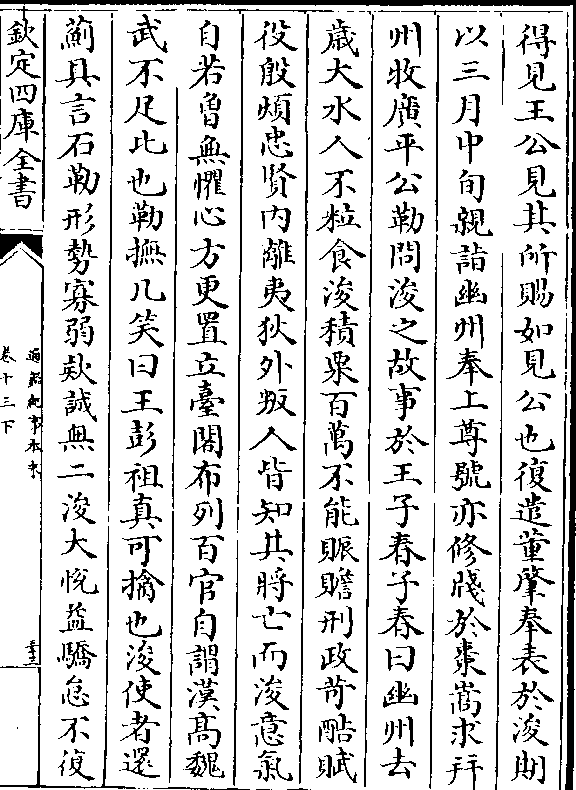 得見王公見其所賜如見公也復遣董肇奉表於浚期
以三月中旬親詣幽州奉上尊號亦修牋於棗嵩求拜
州牧廣平公勒問浚之故事於王子春子春曰幽州去
歲大水人不粒食浚積粟百萬不能賑贍刑政苛酷賦
役殷煩忠賢內離夷狄外叛人皆知其將亡而浚意氣
自若曾無懼心方更置立臺閣布列百官自謂漢高魏
武不足比也勒撫几笑曰王彭祖真可擒也浚使者還
薊具言石勒形勢寡弱欵誠無二浚大悅益驕怠不復
欽定四庫全書
通鑑紀事本末
卷十三下